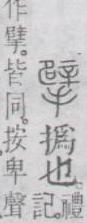 擘撝也。禮
記
作擘。皆同。按卑聲